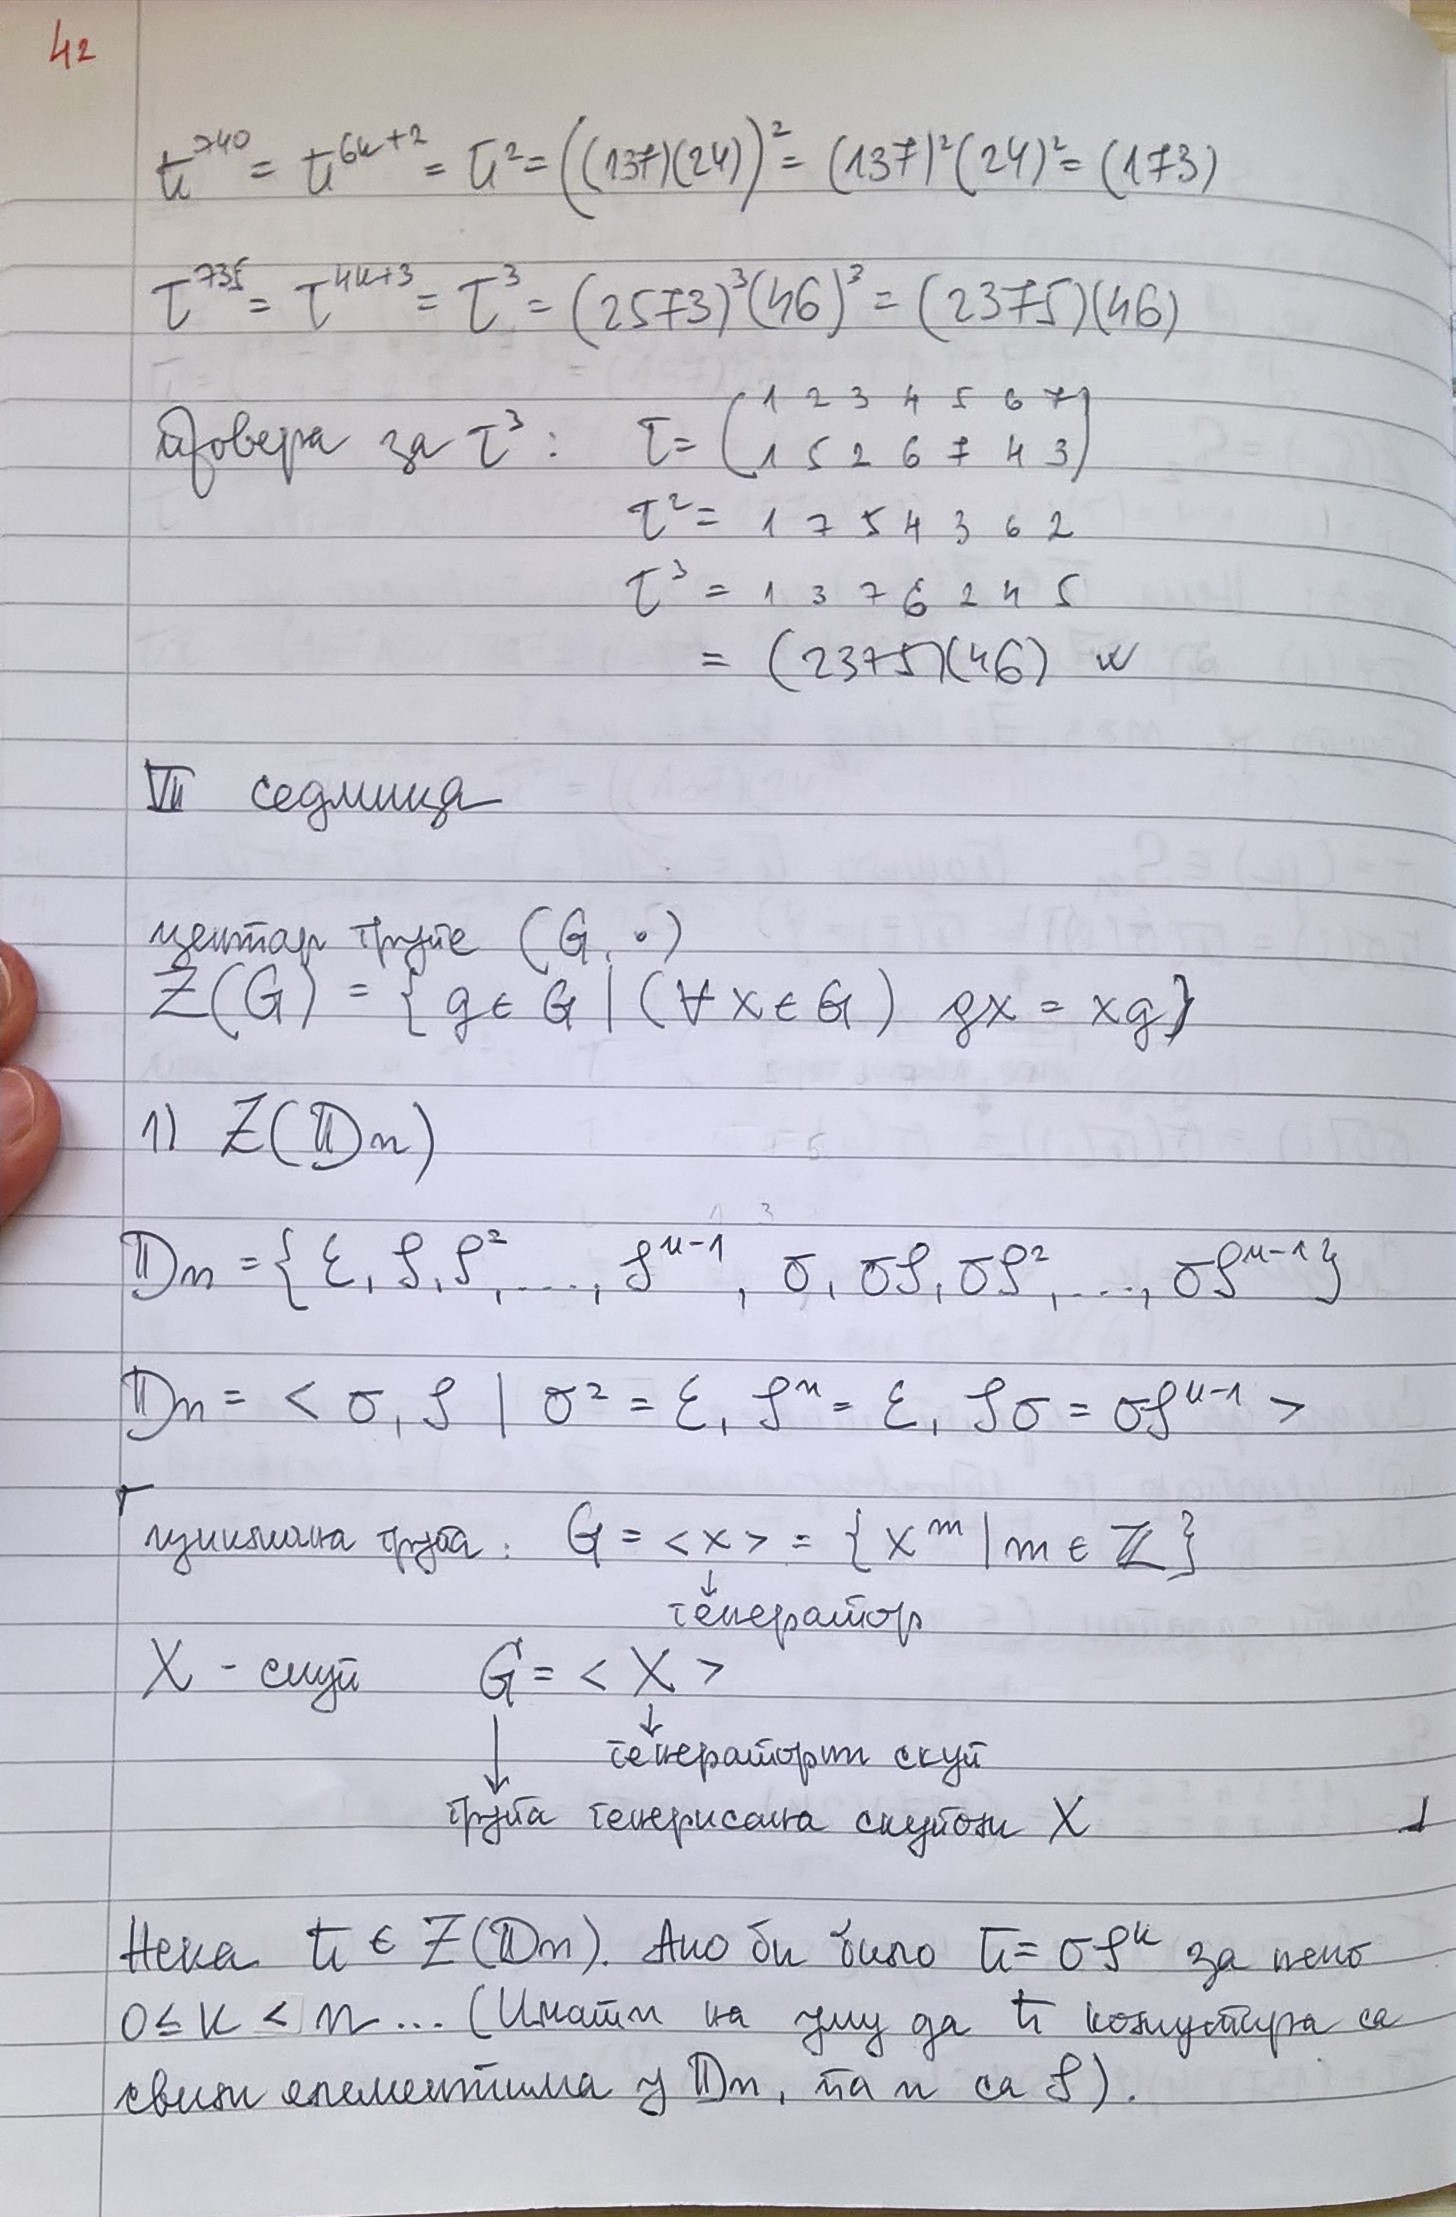 42
π^740 = π^{6k+2} = π² = ((137)(24))² = (137)²(24)² = (173)
τ^735 = τ^{4k+3} = τ³ = (2573)³(46)³ = (2375)(46)
Провера за τ³: τ = (1 2 3 4 5 6 7
1 5 2 6 7 4 3)
τ² = 1 7 5 4 3 6 2
τ³ = 1 3 7 6 2 4 5
= (2375)(46) ✓
VII седмица
центар групе (G, ·)
Z(G) = {g ∈ G | (∀x ∈ G) gx = xg}
1) Z(𝔻n)
𝔻n = {ε, ρ, ρ², ..., ρ^{n-1}, σ, σρ, σρ², ..., σρ^{n-1}}
𝔻n = < σ, ρ | σ² = ε, ρ^n = ε, ρσ = σρ^{n-1} >
⌈ циклична група: G = <x> = {x^m | m ∈ ℤ}
↓ генератор
X - скуп G = < X >
↓ генераторни скуп
↓ група генерисана скупом X ⌋
Нека π ∈ Z(𝔻n). Ако би било π = σρ^k за неко
0 ≤ k < n ... (Имати на уму да π комутира са
свим елементима у 𝔻n, па и са ρ).